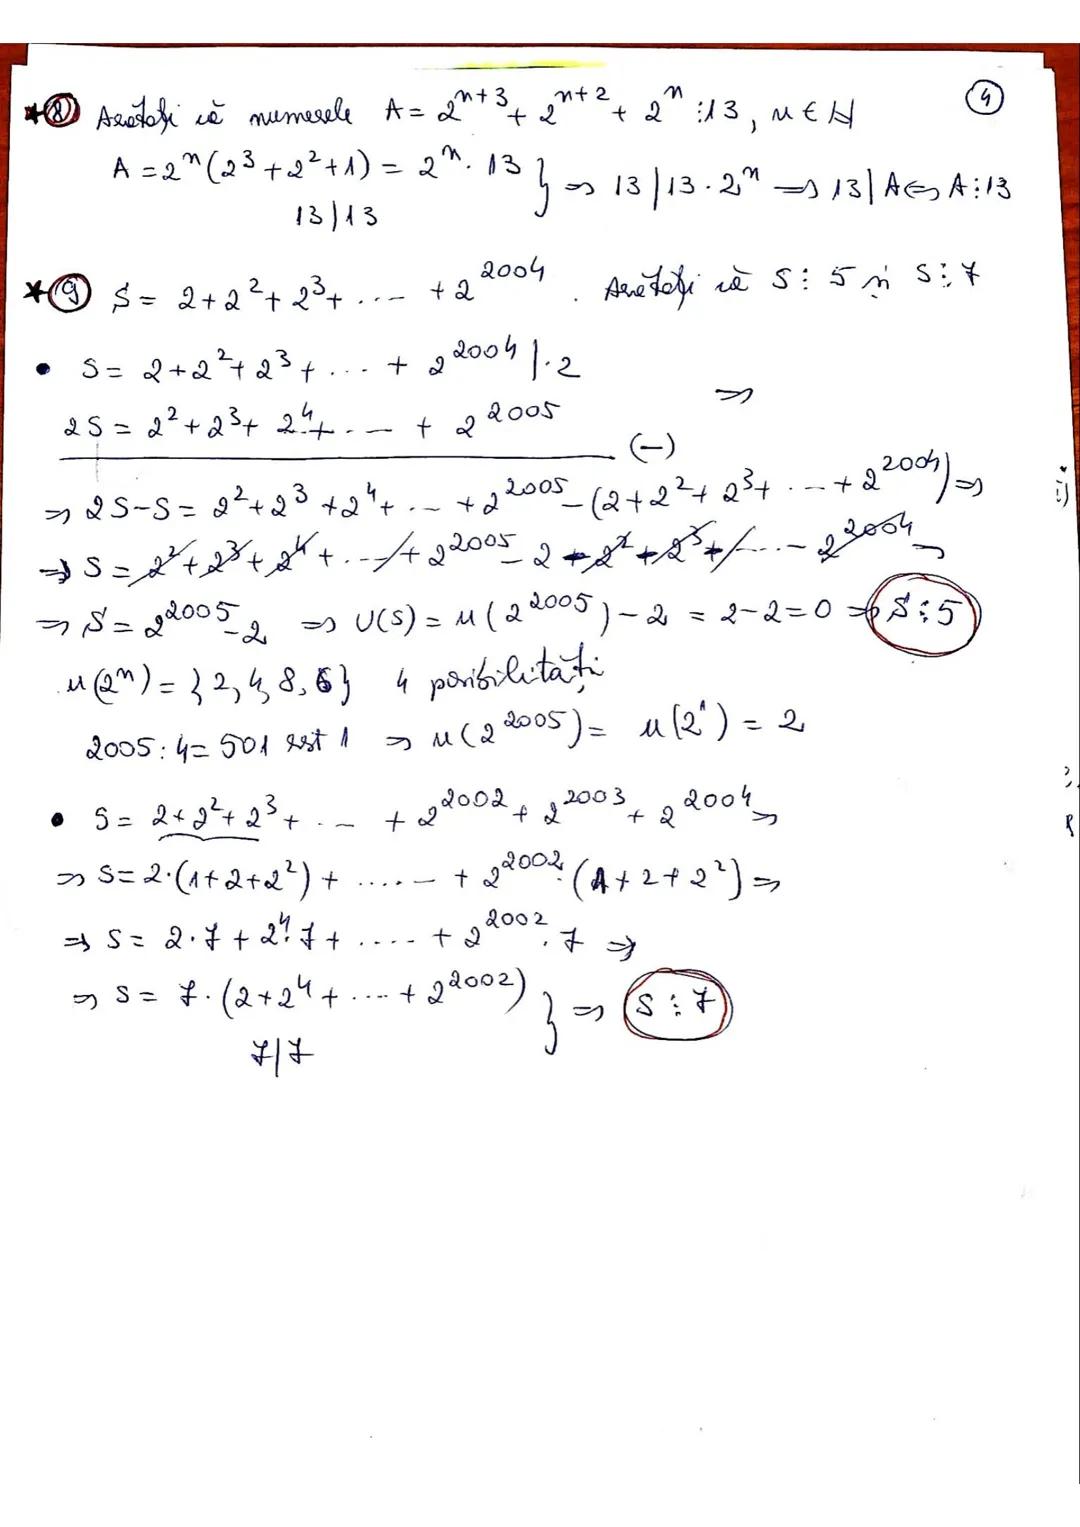 ④
★⑧ Arătați că numerele A = 2^{n+3} + 2^{n+2} + 2^n ⋮ 13, n ∈ N
A = 2^n (2^3 + 2^2 + 1) = 2^n · 13 } ⇒ 13 | 13 · 2^n ⇒ 13 | A ⇔ A ⋮ 13
13 | 13
★⑨ S = 2 + 2^2 + 2^3 + .... + 2^{2004} . Arătați că S ⋮ 5 și S ⋮ 7
• S = 2 + 2^2 + 2^3 + ... + 2^{2004} | · 2
⇒
2S = 2^2 + 2^3 + 2^4 + ... + 2^{2005}
(−)
⇒ 2S − S = 2^2 + 2^3 + 2^4 + ... + 2^{2005} − (2 + 2^2 + 2^3 + ... + 2^{2004}) ⇒
⇒ S = 2^2 + 2^3 + 2^4 + ... + 2^{2005} − 2 − 2^2 + 2^3 + ... − 2^{2004} ⇒
⇒ S = 2^{2005} − 2 ⇒ U(S) = u(2^{2005}) − 2 = 2 − 2 = 0 ⇒ S ⋮ 5
u(2^n) = {2, 4, 8, 6} 4 posibilități
2005 : 4 = 501 rest 1 ⇒ u(2^{2005}) = u(2^1) = 2
• S = 2 + 2^2 + 2^3 + ... + 2^{2002} + 2^{2003} + 2^{2004} ⇒
⇒ S = 2 · (1 + 2 + 2^2) + ..... + 2^{2002} · (1 + 2 + 2^2) ⇒
⇒ S = 2 · 7 + 2^4 · 7 + ..... + 2^{2002} · 7 ⇒
⇒ S = 7 · (2 + 2^4 + .... + 2^{2002}) } ⇒ S ⋮ 7
7 | 7